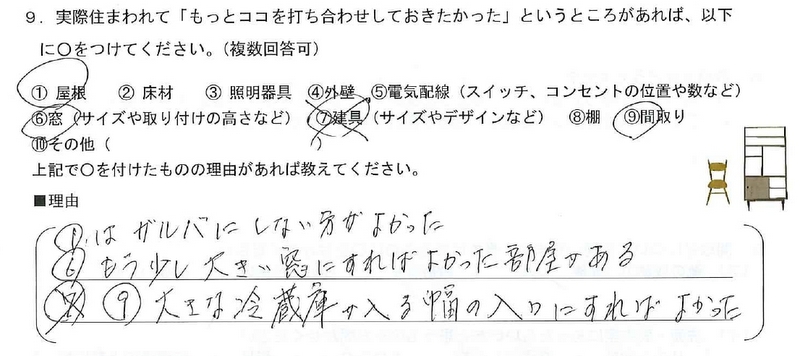 ９．実際住まわれて「もっとココを打ち合わせしておきたかった」というところがあれば、以下
に〇をつけてください。（複数回答可）
① 屋根　② 床材　③ 照明器具　④外壁　⑤電気配線（スイッチ、コンセントの位置や数など）
⑥窓（サイズや取り付けの高さなど）　⑦建具（サイズやデザインなど）　⑧棚　⑨間取り
⑩その他（　　　　　　　　　　）
上記で〇を付けたものの理由があれば教えてください。
■理由
①はガルバにしない方がよかった
⑥もう少し大きい窓にすればよかった部屋がある
⑦ ⑨ 大きな冷蔵庫が入る幅の入口にすればよかった